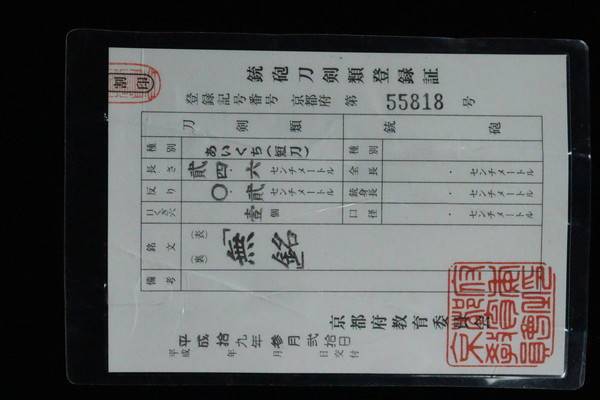 割印
銃砲刀剣類登録証
登録記号番号 京都府 第 55818 号
刀剣類 銃砲
種別 あいくち(短刀) 種別
長さ 貳四.六 センチメートル 全長 . センチメートル
反り 〇.貳 センチメートル 銃身長 . センチメートル
目くぎ穴 壹個 口径 . センチメートル
銘文 (表) (裏) 「無銘」
備考
京都府教育委員会
平成 平成拾九年参月弐拾日交付